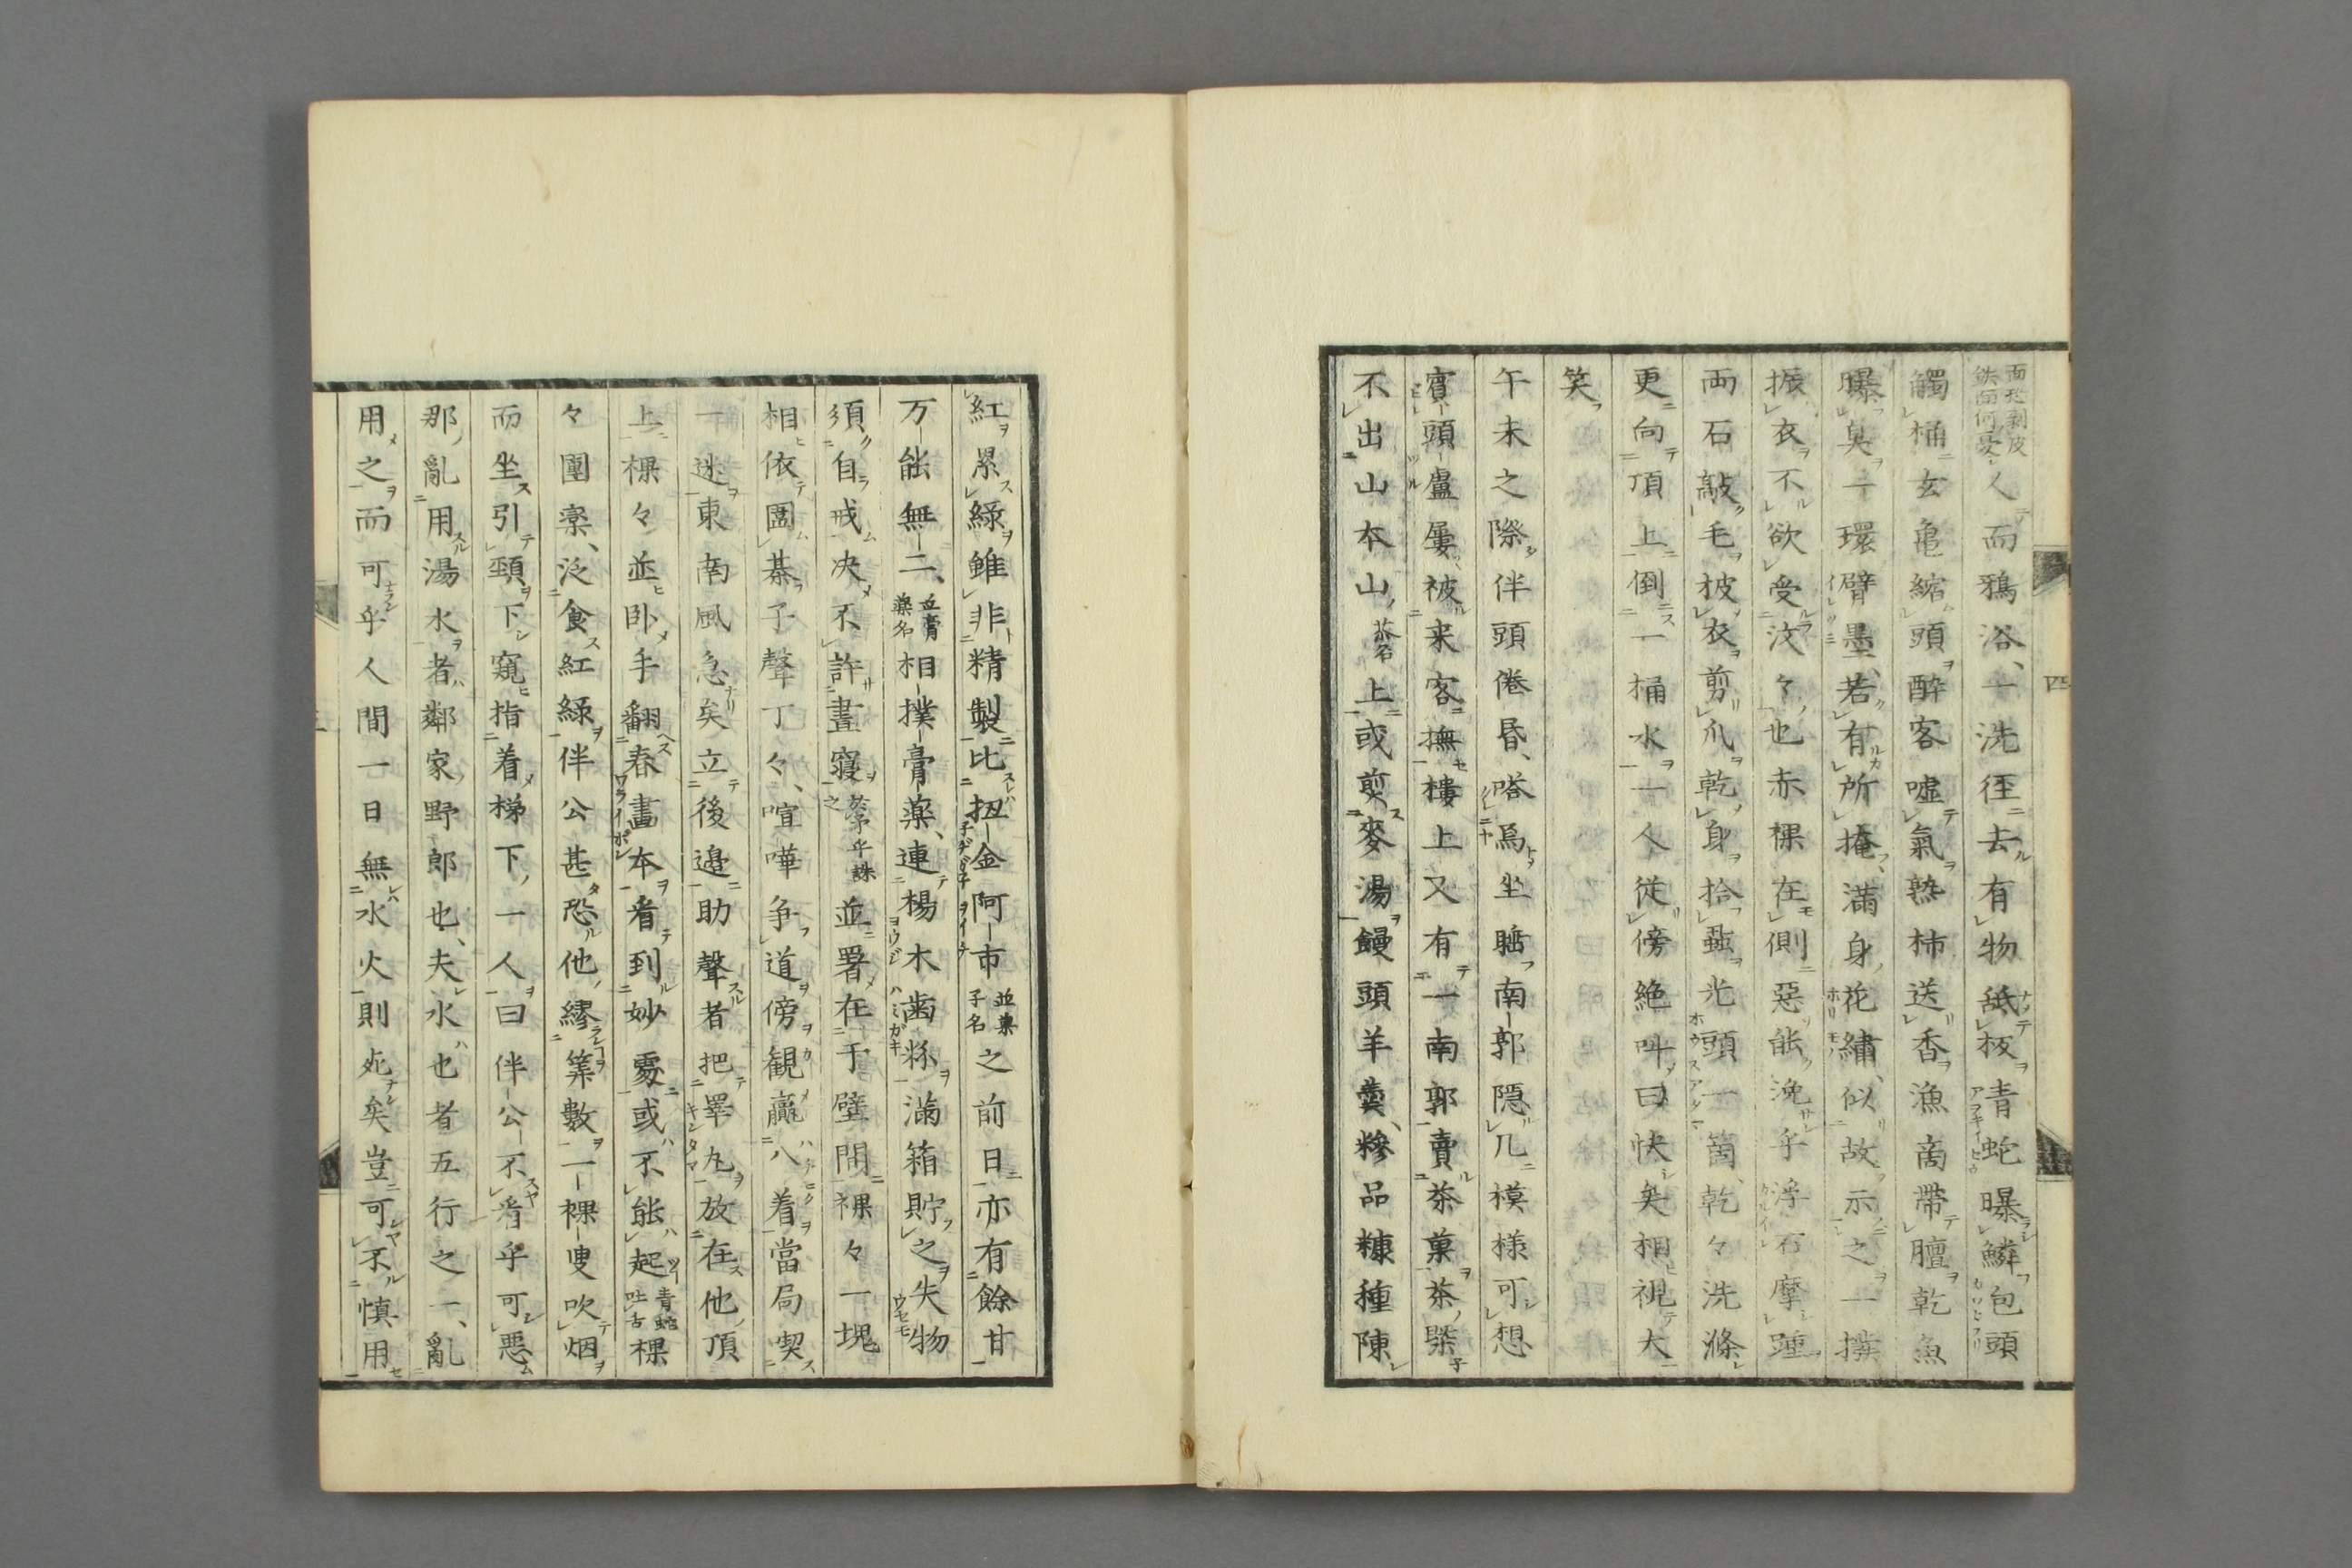 人而鴉浴、一洗径去有物舐板青蛇曝鱗包頭
觸桶玄亀縮頭酔客嘘氣熟柿送香漁啇帶膻乾魚
曝臭一環臂墨、若有所掩、滿身花繡、似故示之一撲
振衣不欲受汶々也赤裸在側惡能浼乎浮石摩踵
両石敲毛披衣剪爪乾身拾蝨光頭一箇乾々洗滌
更向頂上倒一桶水一人従傍絶叫曰快矣相視大
笑
午未之際伴頭倦昏、嗒焉坐睡南郭隠几模様可想
賓頭盧屢被来客撫樓上又有一南郭賣茶菓茶
不出山本山茶名上或煎麥湯饅頭羊羹、糝品糠種陳
紅累緑雖非精製比扭金阿市並菓子名之前日亦有餘甘
万能無二、並膏薬名相撲膏薬、連楊木歯粉滿箱貯之失物
須自戒决不許晝寝之並署在于壁間裸々一塊
相依圍棊子聲丁々、喧嘩争道傍観贏八着當局喫
一迷東南風急矣立後邉助聲者把睾丸放在他頂
上裸々並卧手翻春畫本看到妙處或不能起青蛇吐舌裸
々團欒、泛食紅緑伴公甚恐他繆筭數一裸叟吹烟
而坐引頸下窺指着梯下、一人曰伴公不看乎可惡
那亂用湯水者鄰家野郎也、夫水也者五行之一、亂
用之而可乎人間一日無水火則死矣豈可不慎用
四